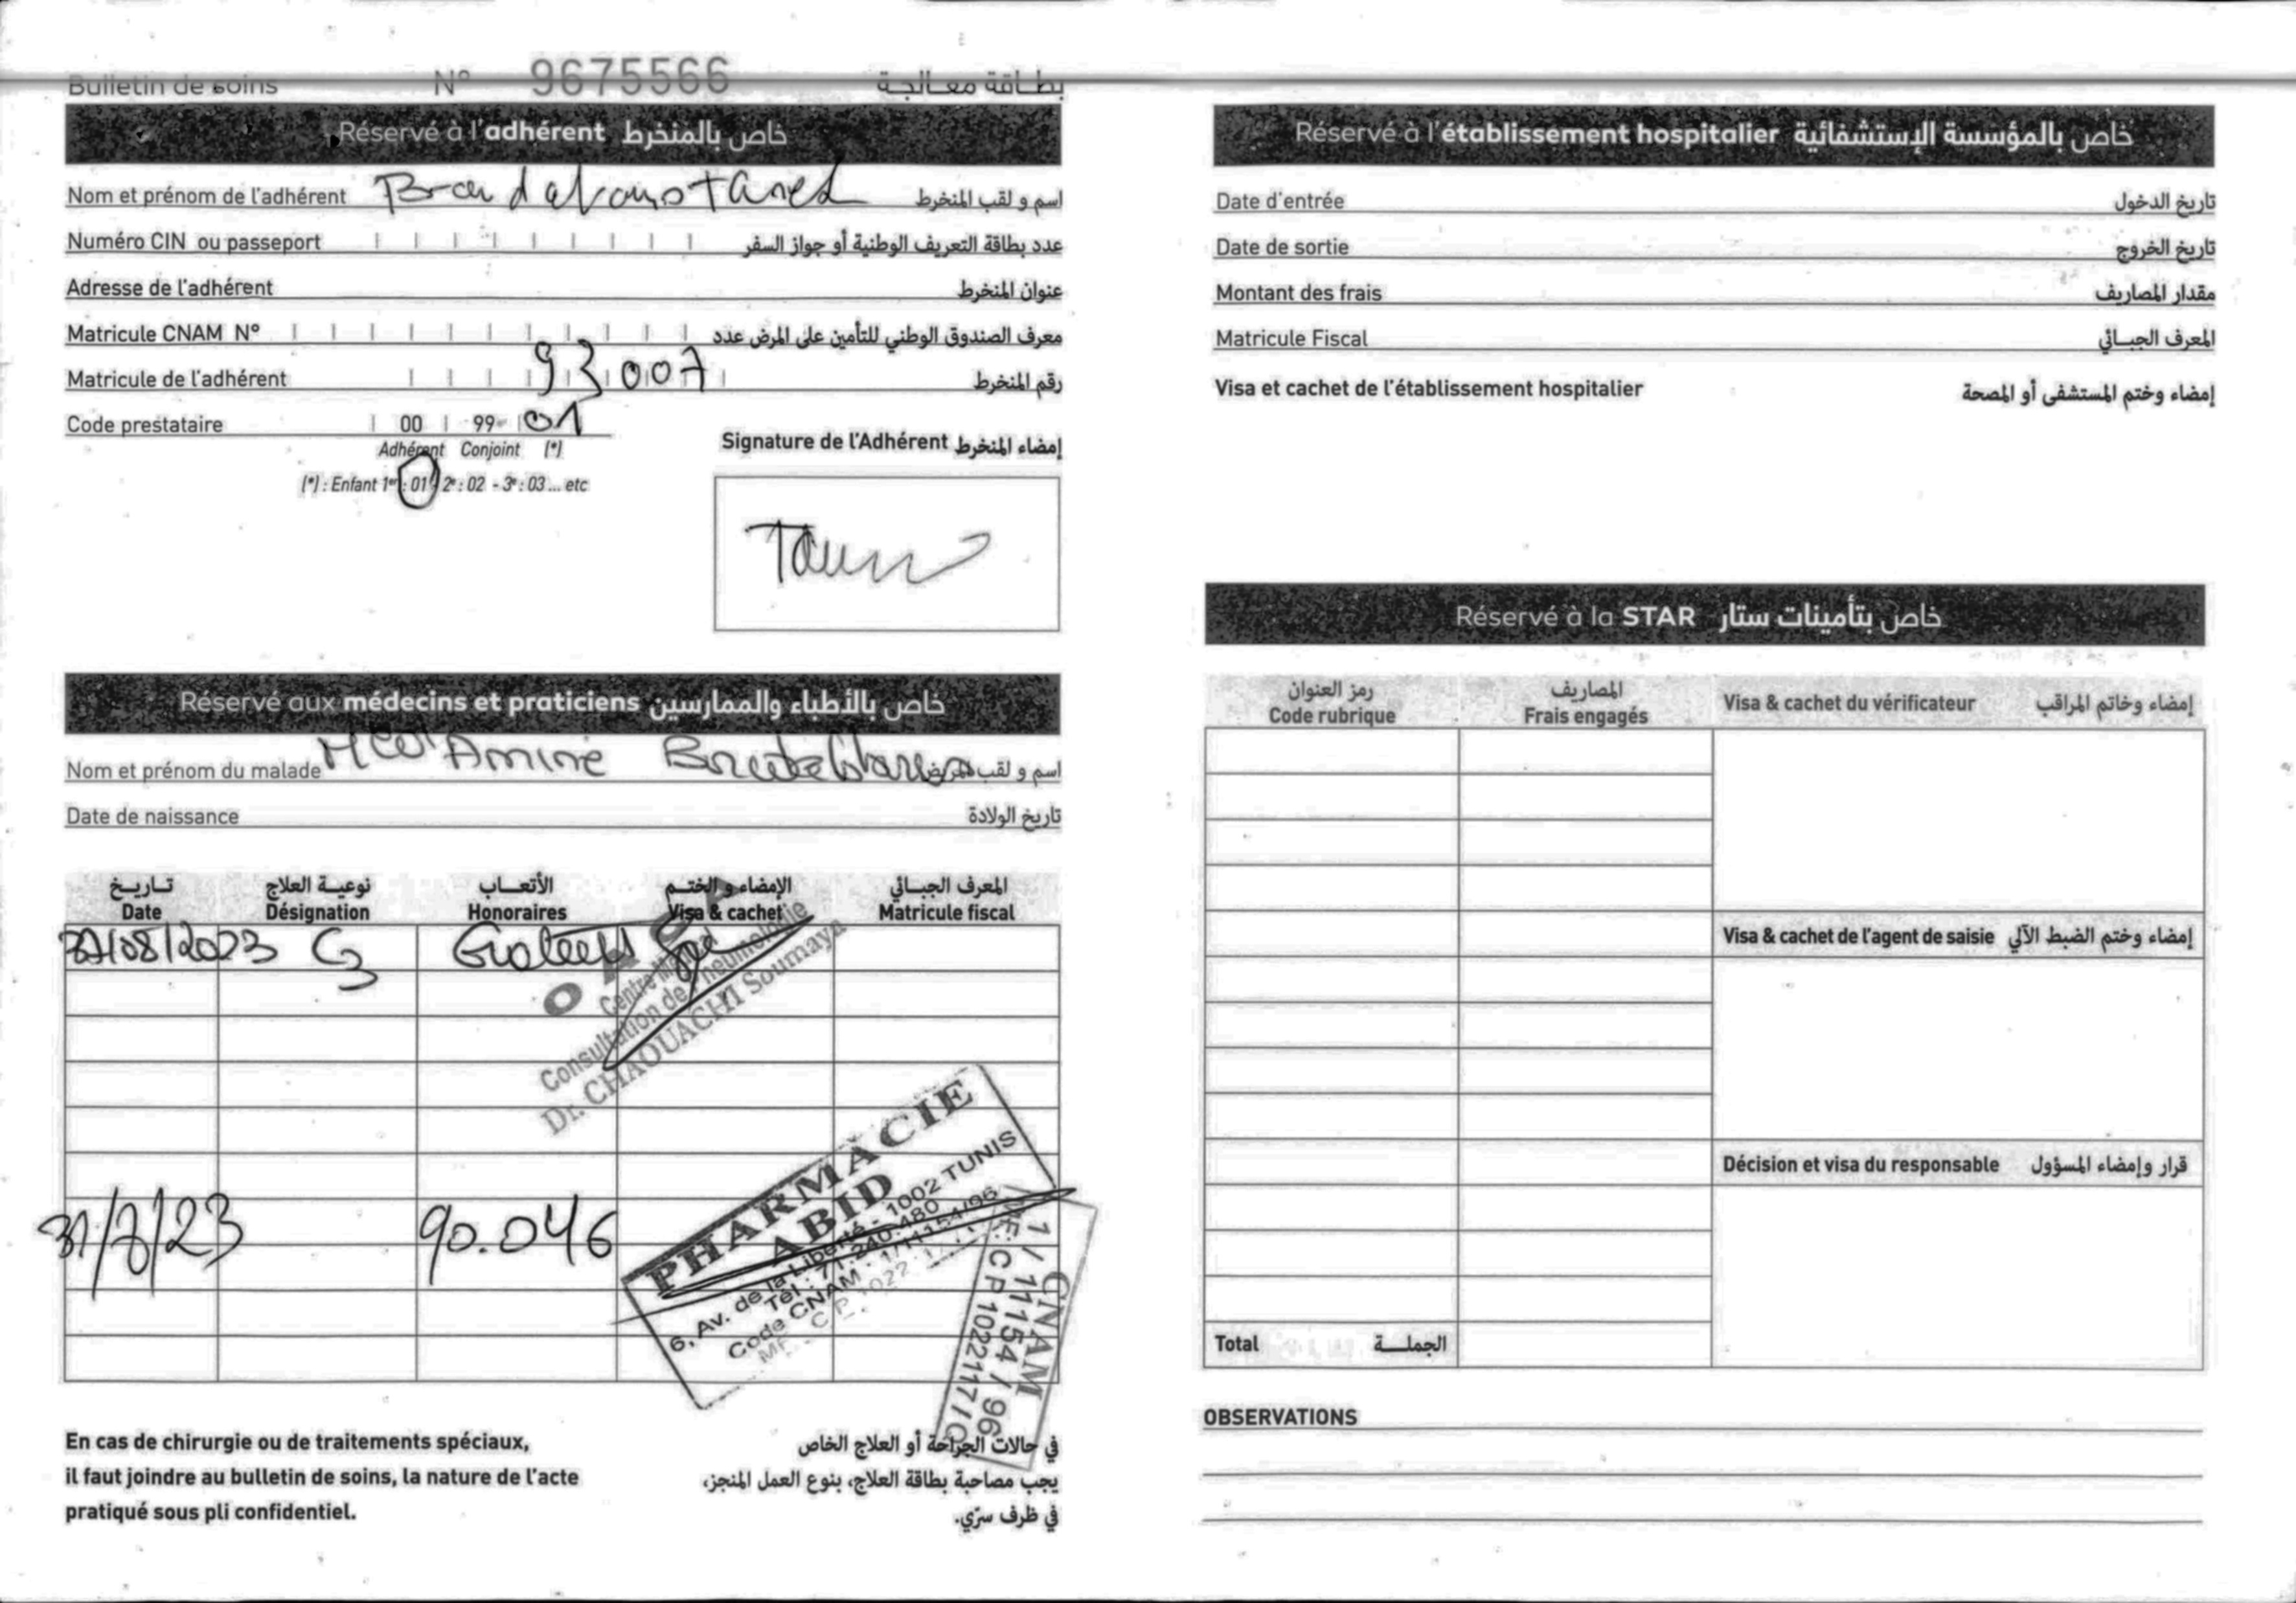 Bulletin de soins N° 9675566 بطـاقة معـالجـة
Réservé à l'adhérent خاص بالمنخرط
Nom et prénom de l'adhérent اسم و لقب المنخرط
Numéro CIN ou passeport عدد بطاقة التعريف الوطنية أو جواز السفر
Adresse de l'adhérent عنوان المنخرط
Matricule CNAM N° معرف الصندوق الوطني للتأمين على المرض عدد
Matricule de l'adhérent 93007 رقم المنخرط
Code prestataire 00 99 01
Adhérent Conjoint (*)
(*) : Enfant 1er : 01 - 2e : 02 - 3e : 03 ... etc
Signature de l'Adhérent إمضاء المنخرط
Réservé aux médecins et praticiens خاص بالأطباء والممارسين
Nom et prénom du malade Med Amine اسم و لقب المريض
Date de naissance تاريخ الولادة
تـاريـخ نوعيـة العلاج الأتعـــاب الإمضاء و الختـم المعرف الجبـائي
Date Désignation Honoraires Visa & cachet Matricule fiscal
/08/2023 C3
Centre
Consultation de Pneumologie
Dr. CHAOUACHI Soumaya
31/8/23 90.046
PHARMACIE
ABID
6, Av. de la Liberté - 1002 TUNIS
Tél : 71.240.480
Code CNAM : 1/11154/96
CNAM
1 / 11154 / 96
En cas de chirurgie ou de traitements spéciaux,
il faut joindre au bulletin de soins, la nature de l'acte
pratiqué sous pli confidentiel.
في حالات الجراحة أو العلاج الخاص
يجب مصاحبة بطاقة العلاج، بنوع العمل المنجز،
في ظرف سرّي.
Réservé à l'établissement hospitalier خاص بالمؤسسة الإستشفائية
Date d'entrée تاريخ الدخول
Date de sortie تاريخ الخروج
Montant des frais مقدار المصاريف
Matricule Fiscal المعرف الجبـائي
Visa et cachet de l'établissement hospitalier إمضاء وختم المستشفى أو المصحة
Réservé à la STAR خاص بتأمينات ستار
رمز العنوان المصاريف
Code rubrique Frais engagés Visa & cachet du vérificateur إمضاء وخاتم المراقب
Visa & cachet de l'agent de saisie إمضاء وختم الضبط الآلي
Décision et visa du responsable قرار وإمضاء المسؤول
Total الجملــة
OBSERVATIONS